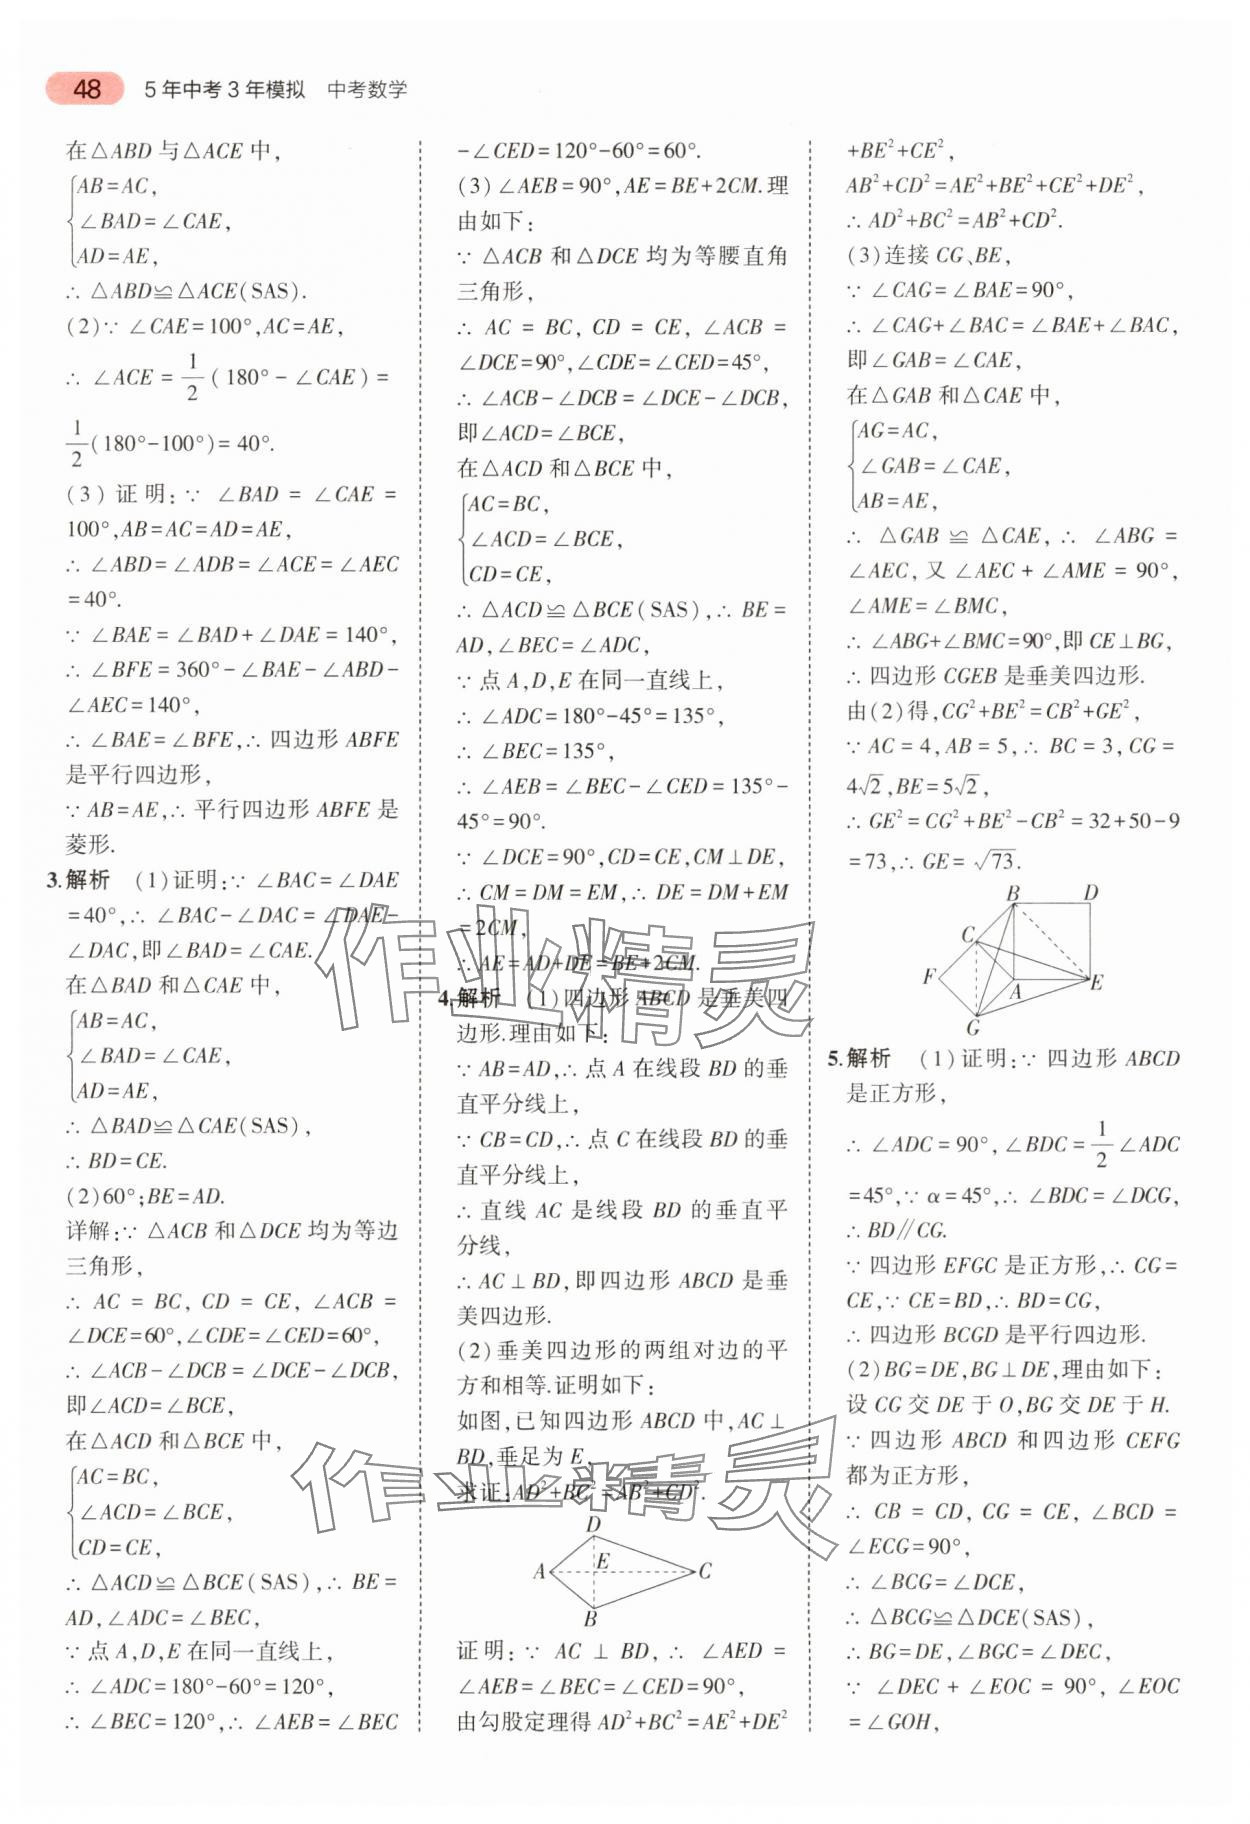 48 5年中考3年模拟 中考数学
在△ABD与△ACE中,
{AB=AC,
∠BAD=∠CAE,
AD=AE,
∴ △ABD≌△ACE(SAS).
(2)∵ ∠CAE=100°,AC=AE,
∴ ∠ACE=1/2(180°-∠CAE)=
1/2(180°-100°)=40°.
(3)证明:∵ ∠BAD=∠CAE=
100°,AB=AC=AD=AE,
∴ ∠ABD=∠ADB=∠ACE=∠AEC
=40°.
∵ ∠BAE=∠BAD+∠DAE=140°,
∴ ∠BFE=360°-∠BAE-∠ABD-
∠AEC=140°,
∴ ∠BAE=∠BFE,∴ 四边形ABFE
是平行四边形,
∵ AB=AE,∴ 平行四边形ABFE是
菱形.
3.解析 (1)证明:∵ ∠BAC=∠DAE
=40°,∴ ∠BAC-∠DAC=∠DAE-
∠DAC,即∠BAD=∠CAE.
在△BAD和△CAE中,
{AB=AC,
∠BAD=∠CAE,
AD=AE,
∴ △BAD≌△CAE(SAS),
∴ BD=CE.
(2)60°;BE=AD.
详解:∵ △ACB和△DCE均为等边
三角形,
∴ AC=BC,CD=CE,∠ACB=
∠DCE=60°,∠CDE=∠CED=60°,
∴ ∠ACB-∠DCB=∠DCE-∠DCB,
即∠ACD=∠BCE,
在△ACD和△BCE中,
{AC=BC,
∠ACD=∠BCE,
CD=CE,
∴ △ACD≌△BCE(SAS),∴ BE=
AD,∠ADC=∠BEC,
∵ 点A,D,E在同一直线上,
∴ ∠ADC=180°-60°=120°,
∴ ∠BEC=120°,∴ ∠AEB=∠BEC
-∠CED=120°-60°=60°.
(3)∠AEB=90°,AE=BE+2CM.理
由如下:
∵ △ACB和△DCE均为等腰直角
三角形,
∴ AC=BC,CD=CE,∠ACB=
∠DCE=90°,∠CDE=∠CED=45°,
∴ ∠ACB-∠DCB=∠DCE-∠DCB,
即∠ACD=∠BCE,
在△ACD和△BCE中,
{AC=BC,
∠ACD=∠BCE,
CD=CE,
∴ △ACD≌△BCE(SAS),∴ BE=
AD,∠BEC=∠ADC,
∵ 点A,D,E在同一直线上,
∴ ∠ADC=180°-45°=135°,
∴ ∠BEC=135°,
∴ ∠AEB=∠BEC-∠CED=135°-
45°=90°.
∵ ∠DCE=90°,CD=CE,CM⊥DE,
∴ CM=DM=EM,∴ DE=DM+EM
=2CM,
∴ AE=AD+DE=BE+2CM.
4.解析 (1)四边形ABCD是垂美四
边形.理由如下:
∵ AB=AD,∴ 点A在线段BD的垂
直平分线上,
∵ CB=CD,∴ 点C在线段BD的垂
直平分线上,
∴ 直线AC是线段BD的垂直平
分线,
∴ AC⊥BD,即四边形ABCD是垂
美四边形.
(2)垂美四边形的两组对边的平
方和相等.证明如下:
如图,已知四边形ABCD中,AC⊥
BD,垂足为E,
求证:AD²+BC²=AB²+CD².
D
A E C
B
证明:∵ AC⊥BD,∴ ∠AED=
∠AEB=∠BEC=∠CED=90°,
由勾股定理得AD²+BC²=AE²+DE²
+BE²+CE²,
AB²+CD²=AE²+BE²+CE²+DE²,
∴ AD²+BC²=AB²+CD².
(3)连接CG、BE,
∵ ∠CAG=∠BAE=90°,
∴ ∠CAG+∠BAC=∠BAE+∠BAC,
即∠GAB=∠CAE,
在△GAB和△CAE中,
{AG=AC,
∠GAB=∠CAE,
AB=AE,
∴ △GAB≌△CAE,∴ ∠ABG=
∠AEC,又∠AEC+∠AME=90°,
∠AME=∠BMC,
∴ ∠ABG+∠BMC=90°,即CE⊥BG,
∴ 四边形CGEB是垂美四边形.
由(2)得,CG²+BE²=CB²+GE²,
∵ AC=4,AB=5,∴ BC=3,CG=
4√2,BE=5√2,
∴ GE²=CG²+BE²-CB²=32+50-9
=73,∴ GE=√73.
B D
C
F A E
G
5.解析 (1)证明:∵ 四边形ABCD
是正方形,
∴ ∠ADC=90°,∠BDC=1/2∠ADC
=45°,∵ α=45°,∴ ∠BDC=∠DCG,
∴ BD∥CG.
∵ 四边形EFGC是正方形,∴ CG=
CE,∵ CE=BD,∴ BD=CG,
∴ 四边形BCGD是平行四边形.
(2)BG=DE,BG⊥DE,理由如下:
设CG交DE于O,BG交DE于H.
∵ 四边形ABCD和四边形CEFG
都为正方形,
∴ CB=CD,CG=CE,∠BCD=
∠ECG=90°,
∴ ∠BCG=∠DCE,
∴ △BCG≌△DCE(SAS),
∴ BG=DE,∠BGC=∠DEC,
∵ ∠DEC+∠EOC=90°,∠EOC
=∠GOH,
作业精灵
作业精灵